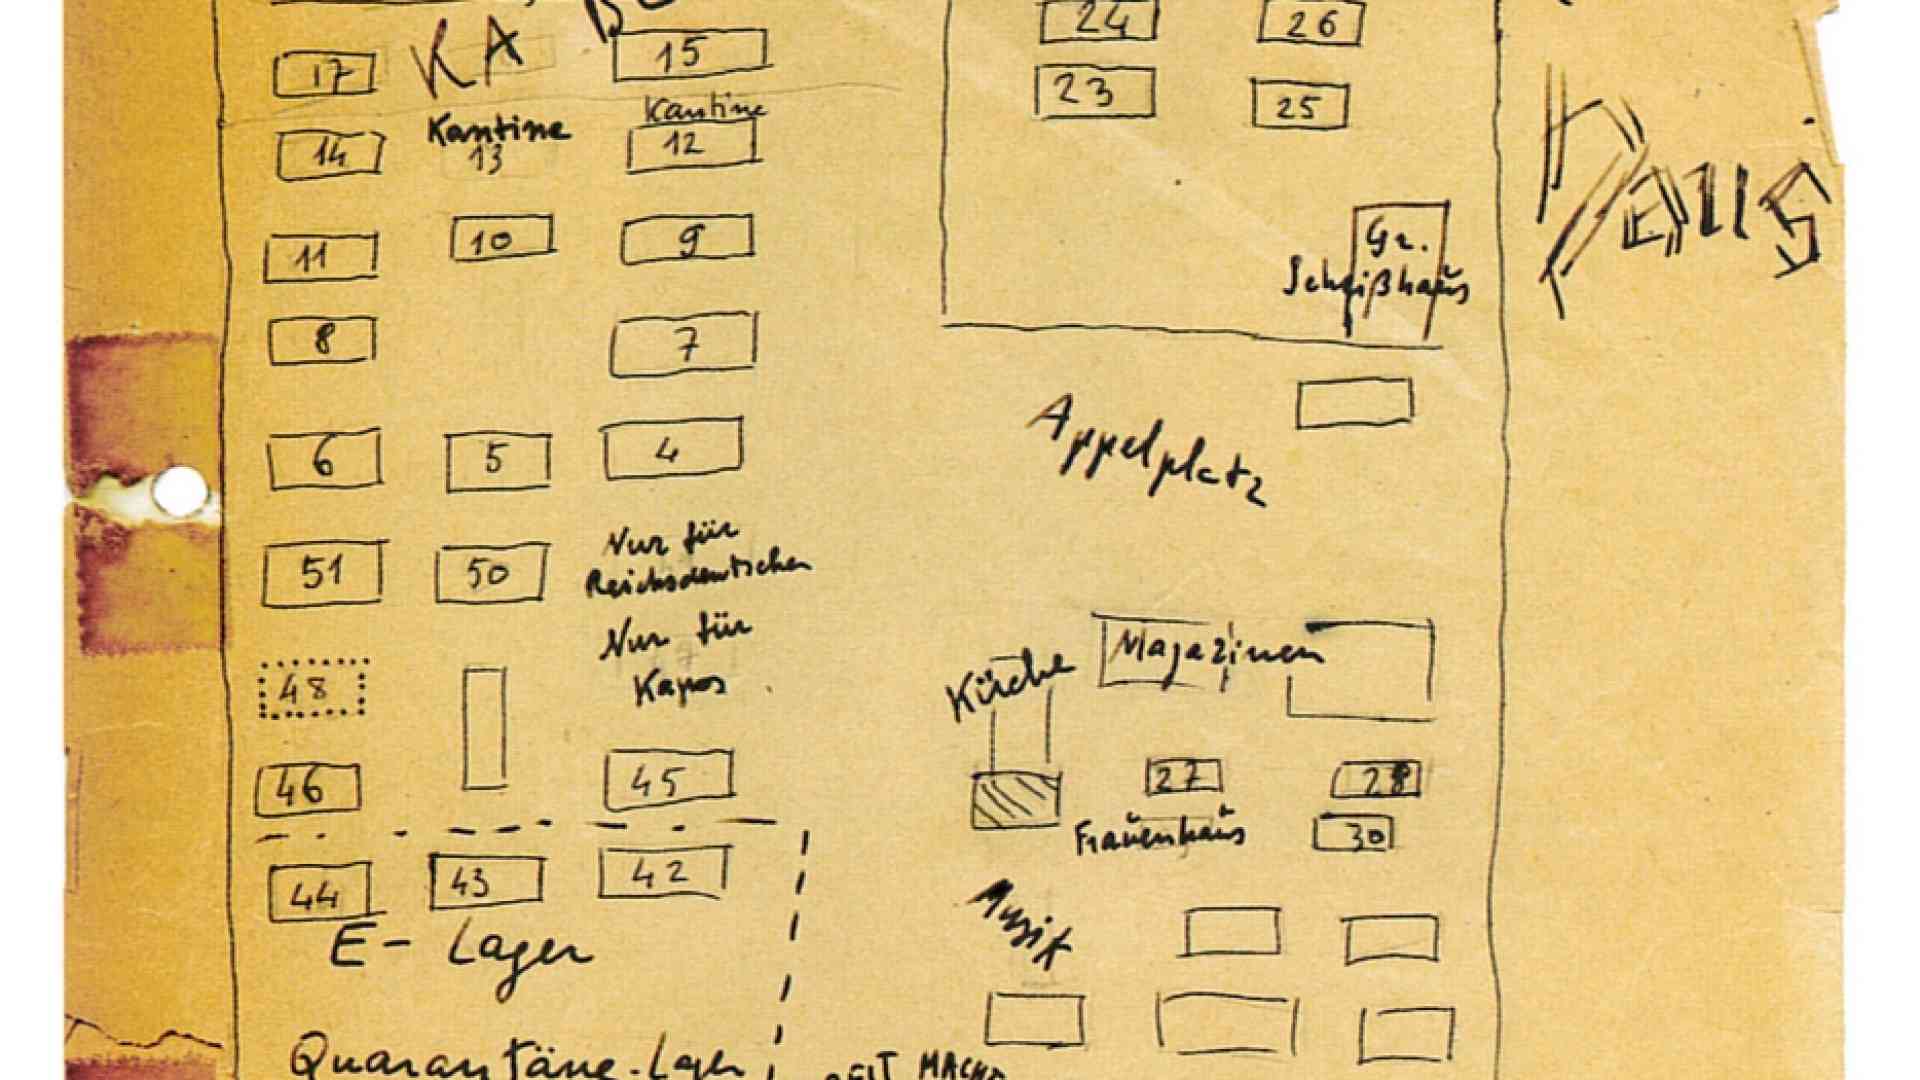 24
26
17
KA
15
23
25
Kantine
Kantine
14
13
12
11
10
9
Gr.
Scheißhaus
8
7
Appelplatz
6
5
4
Nur für
Reichsdeutschen
51
50
Nur für
Kapos
Magazinen
Küche
48
46
45
27
28
Frauenhaus
30
44
43
42
Musik
E-Lager
Quarantäne-Lager